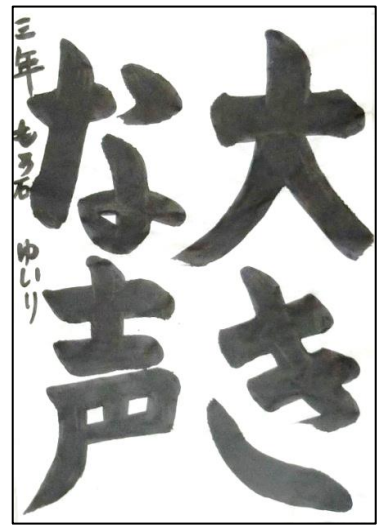 大き
な声
三年 もろ石 ゆいり